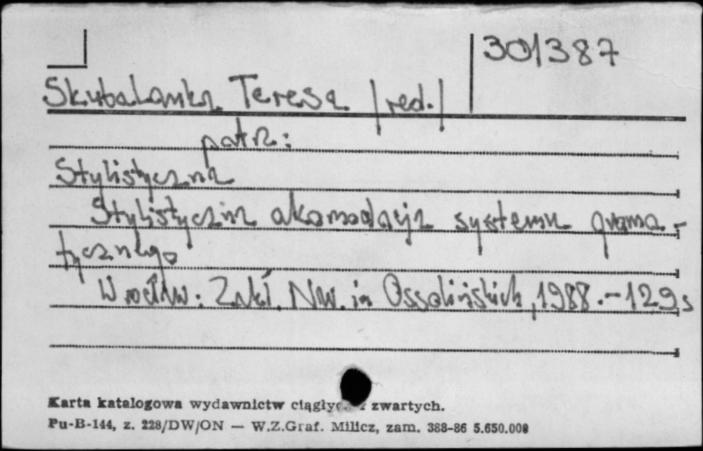 301387
Skubalanka Teresa /red./
patrz:
Stylistyczna
Stylistyczna akomodacja systemu grama-
tycznego
Wrocław: Zakł. Nar. im Ossolińskich, 1988.-129s
Karta katalogowa wydawnictw zwartych.
Pu-B-144, z. 228/DW/ON — W.Z.Graf. Milicz, zam. 388-86 5.650.000